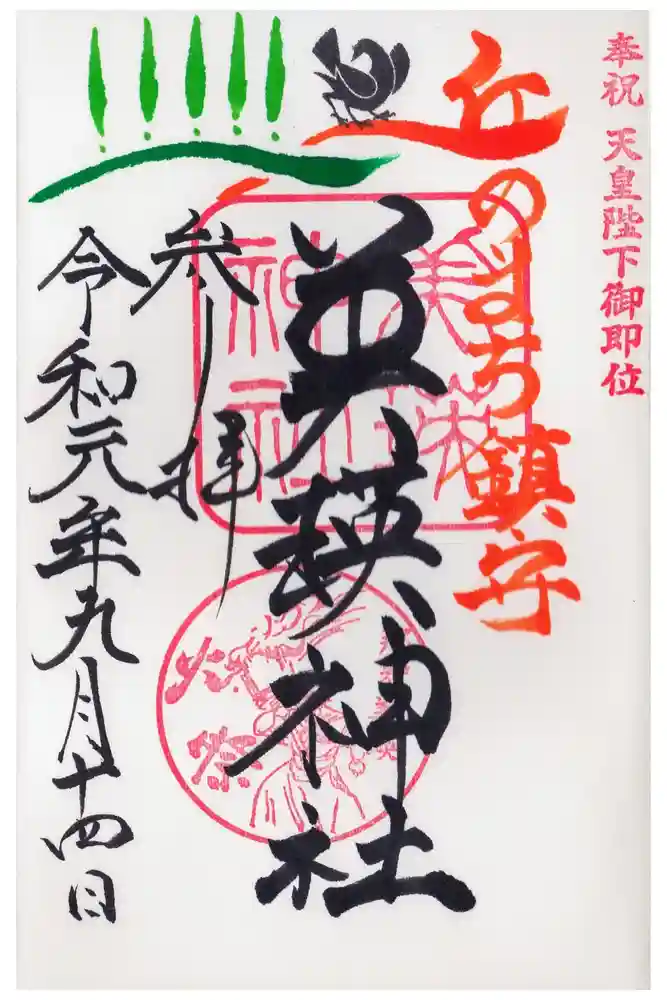 奉祝 天皇陛下御即位
丘のまち鎮守
美瑛神社
美瑛
神社
火祭
参拝
令和元年九月十四日